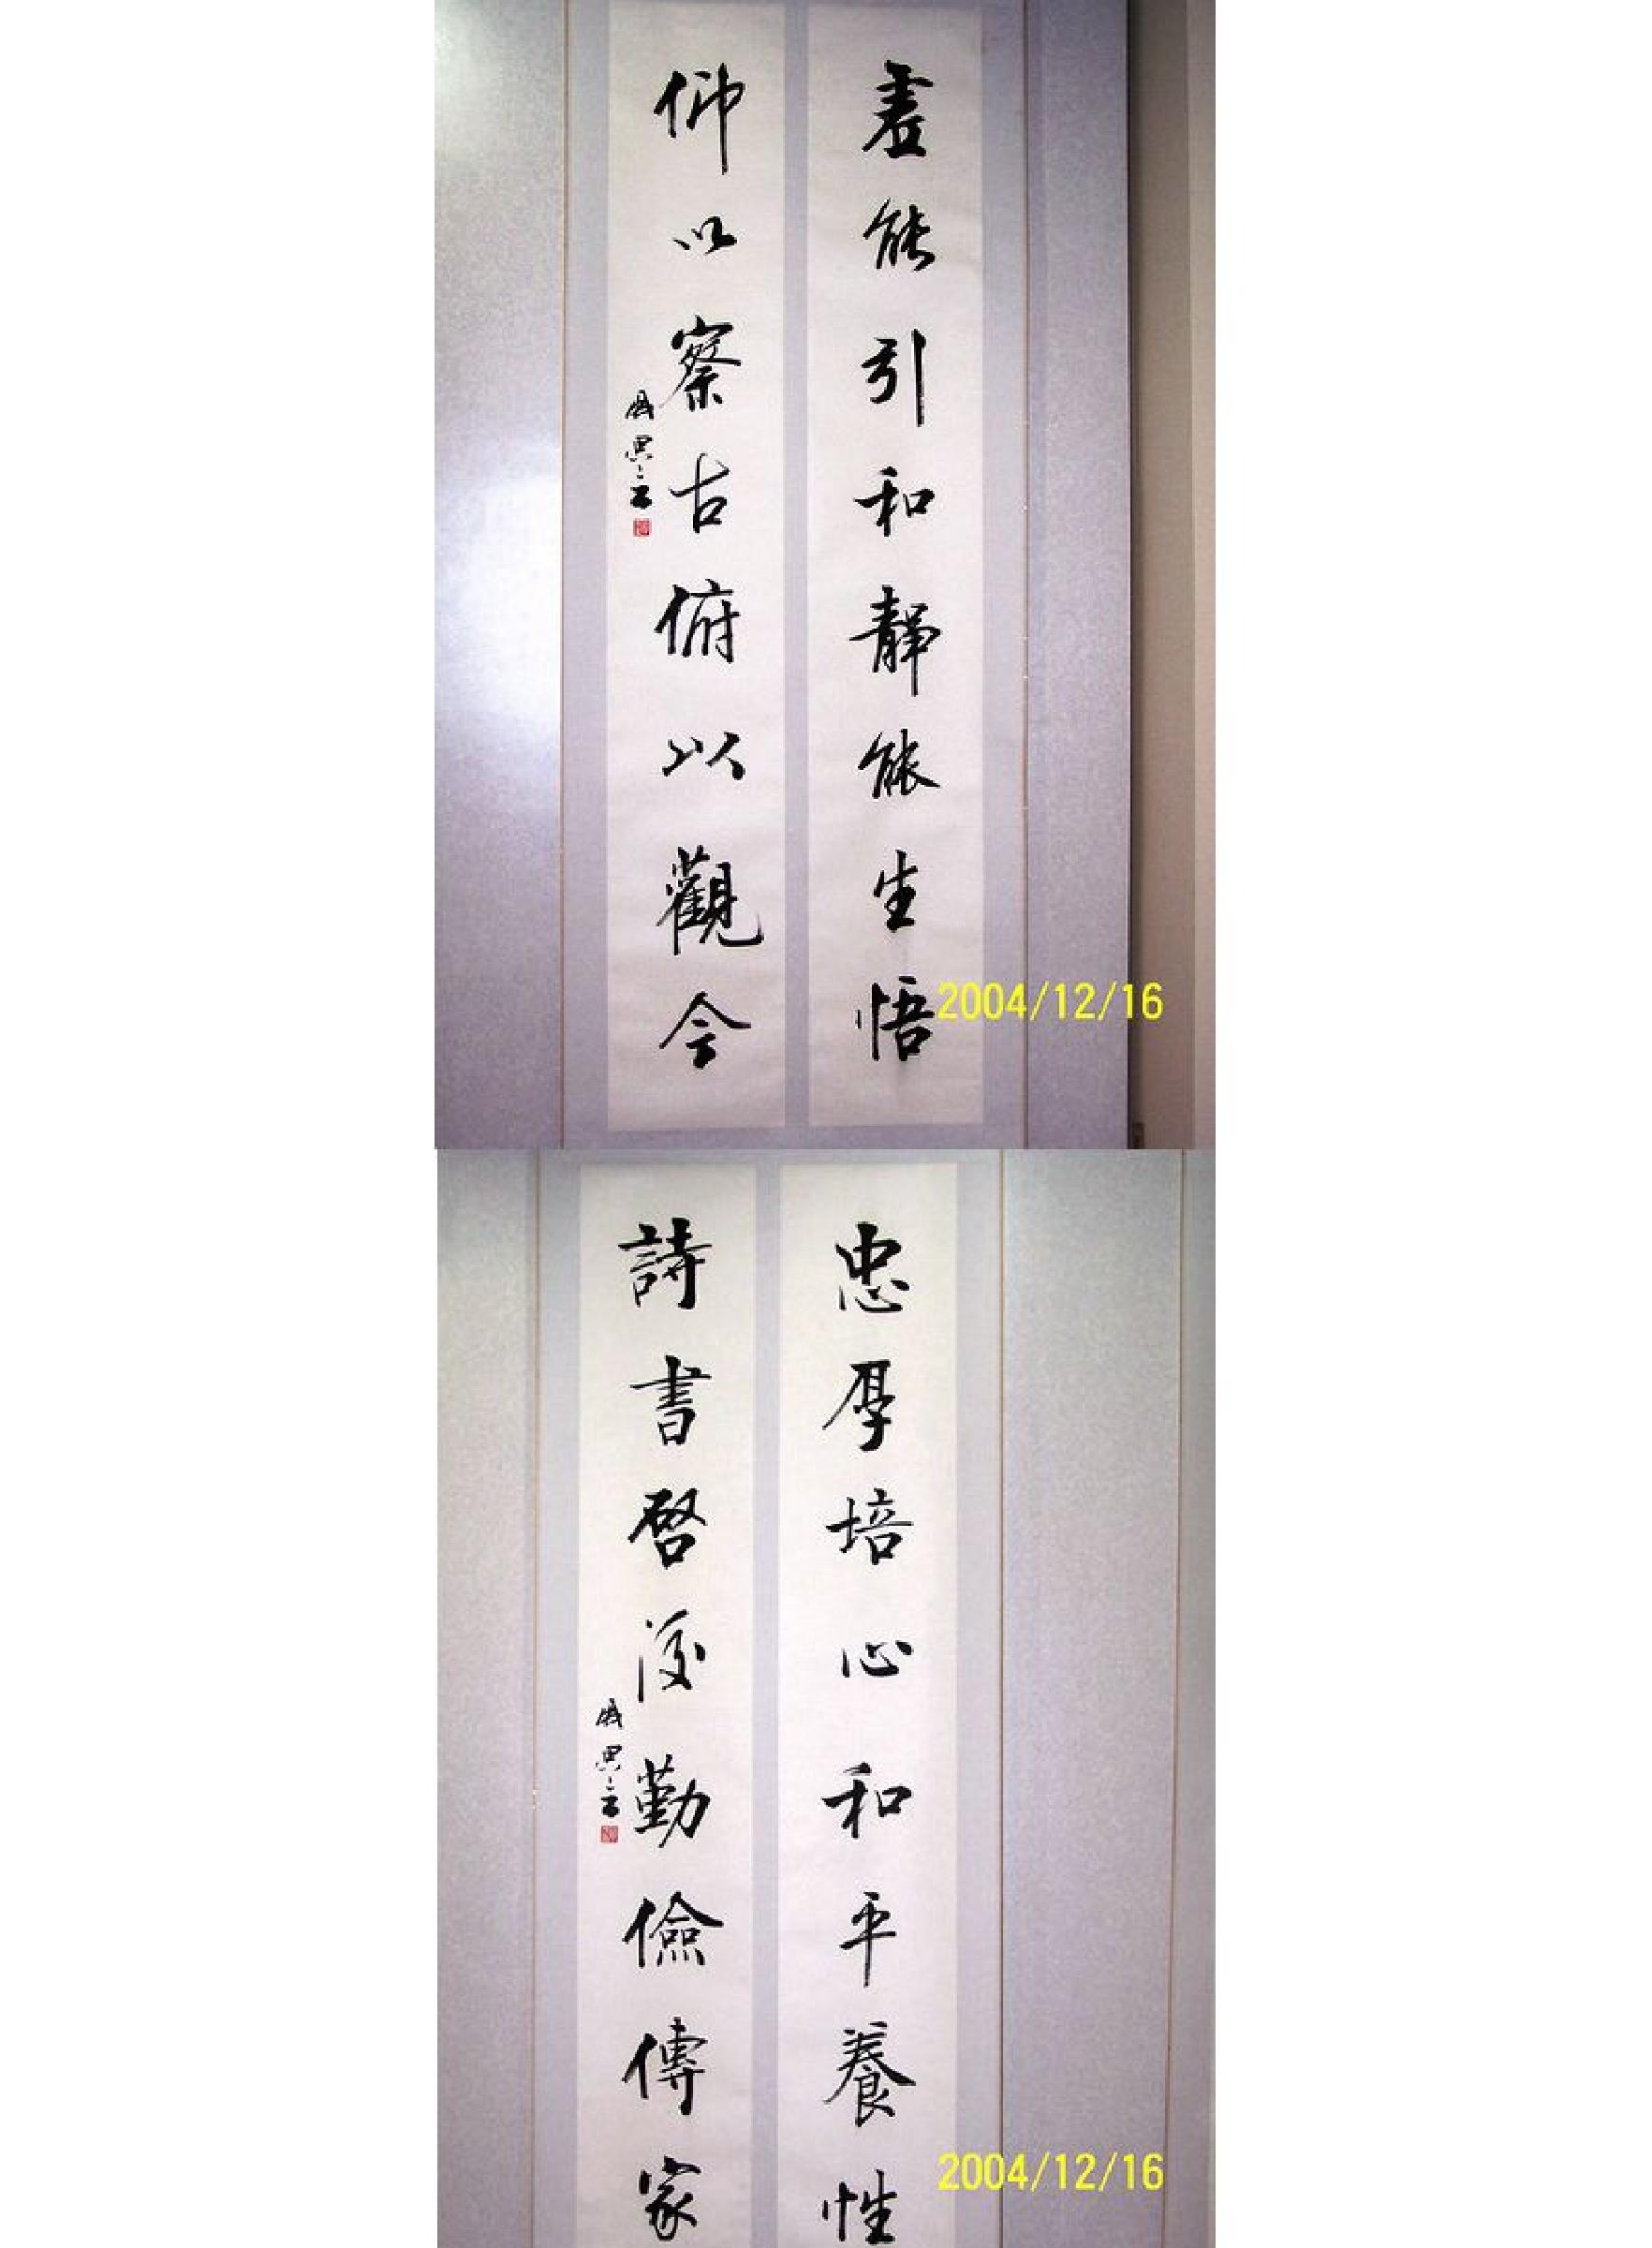 虛能引和靜能生悟
仰以察古俯以觀今
2004/12/16
忠厚培心和平養性
詩書啓後勤儉傳家
2004/12/16